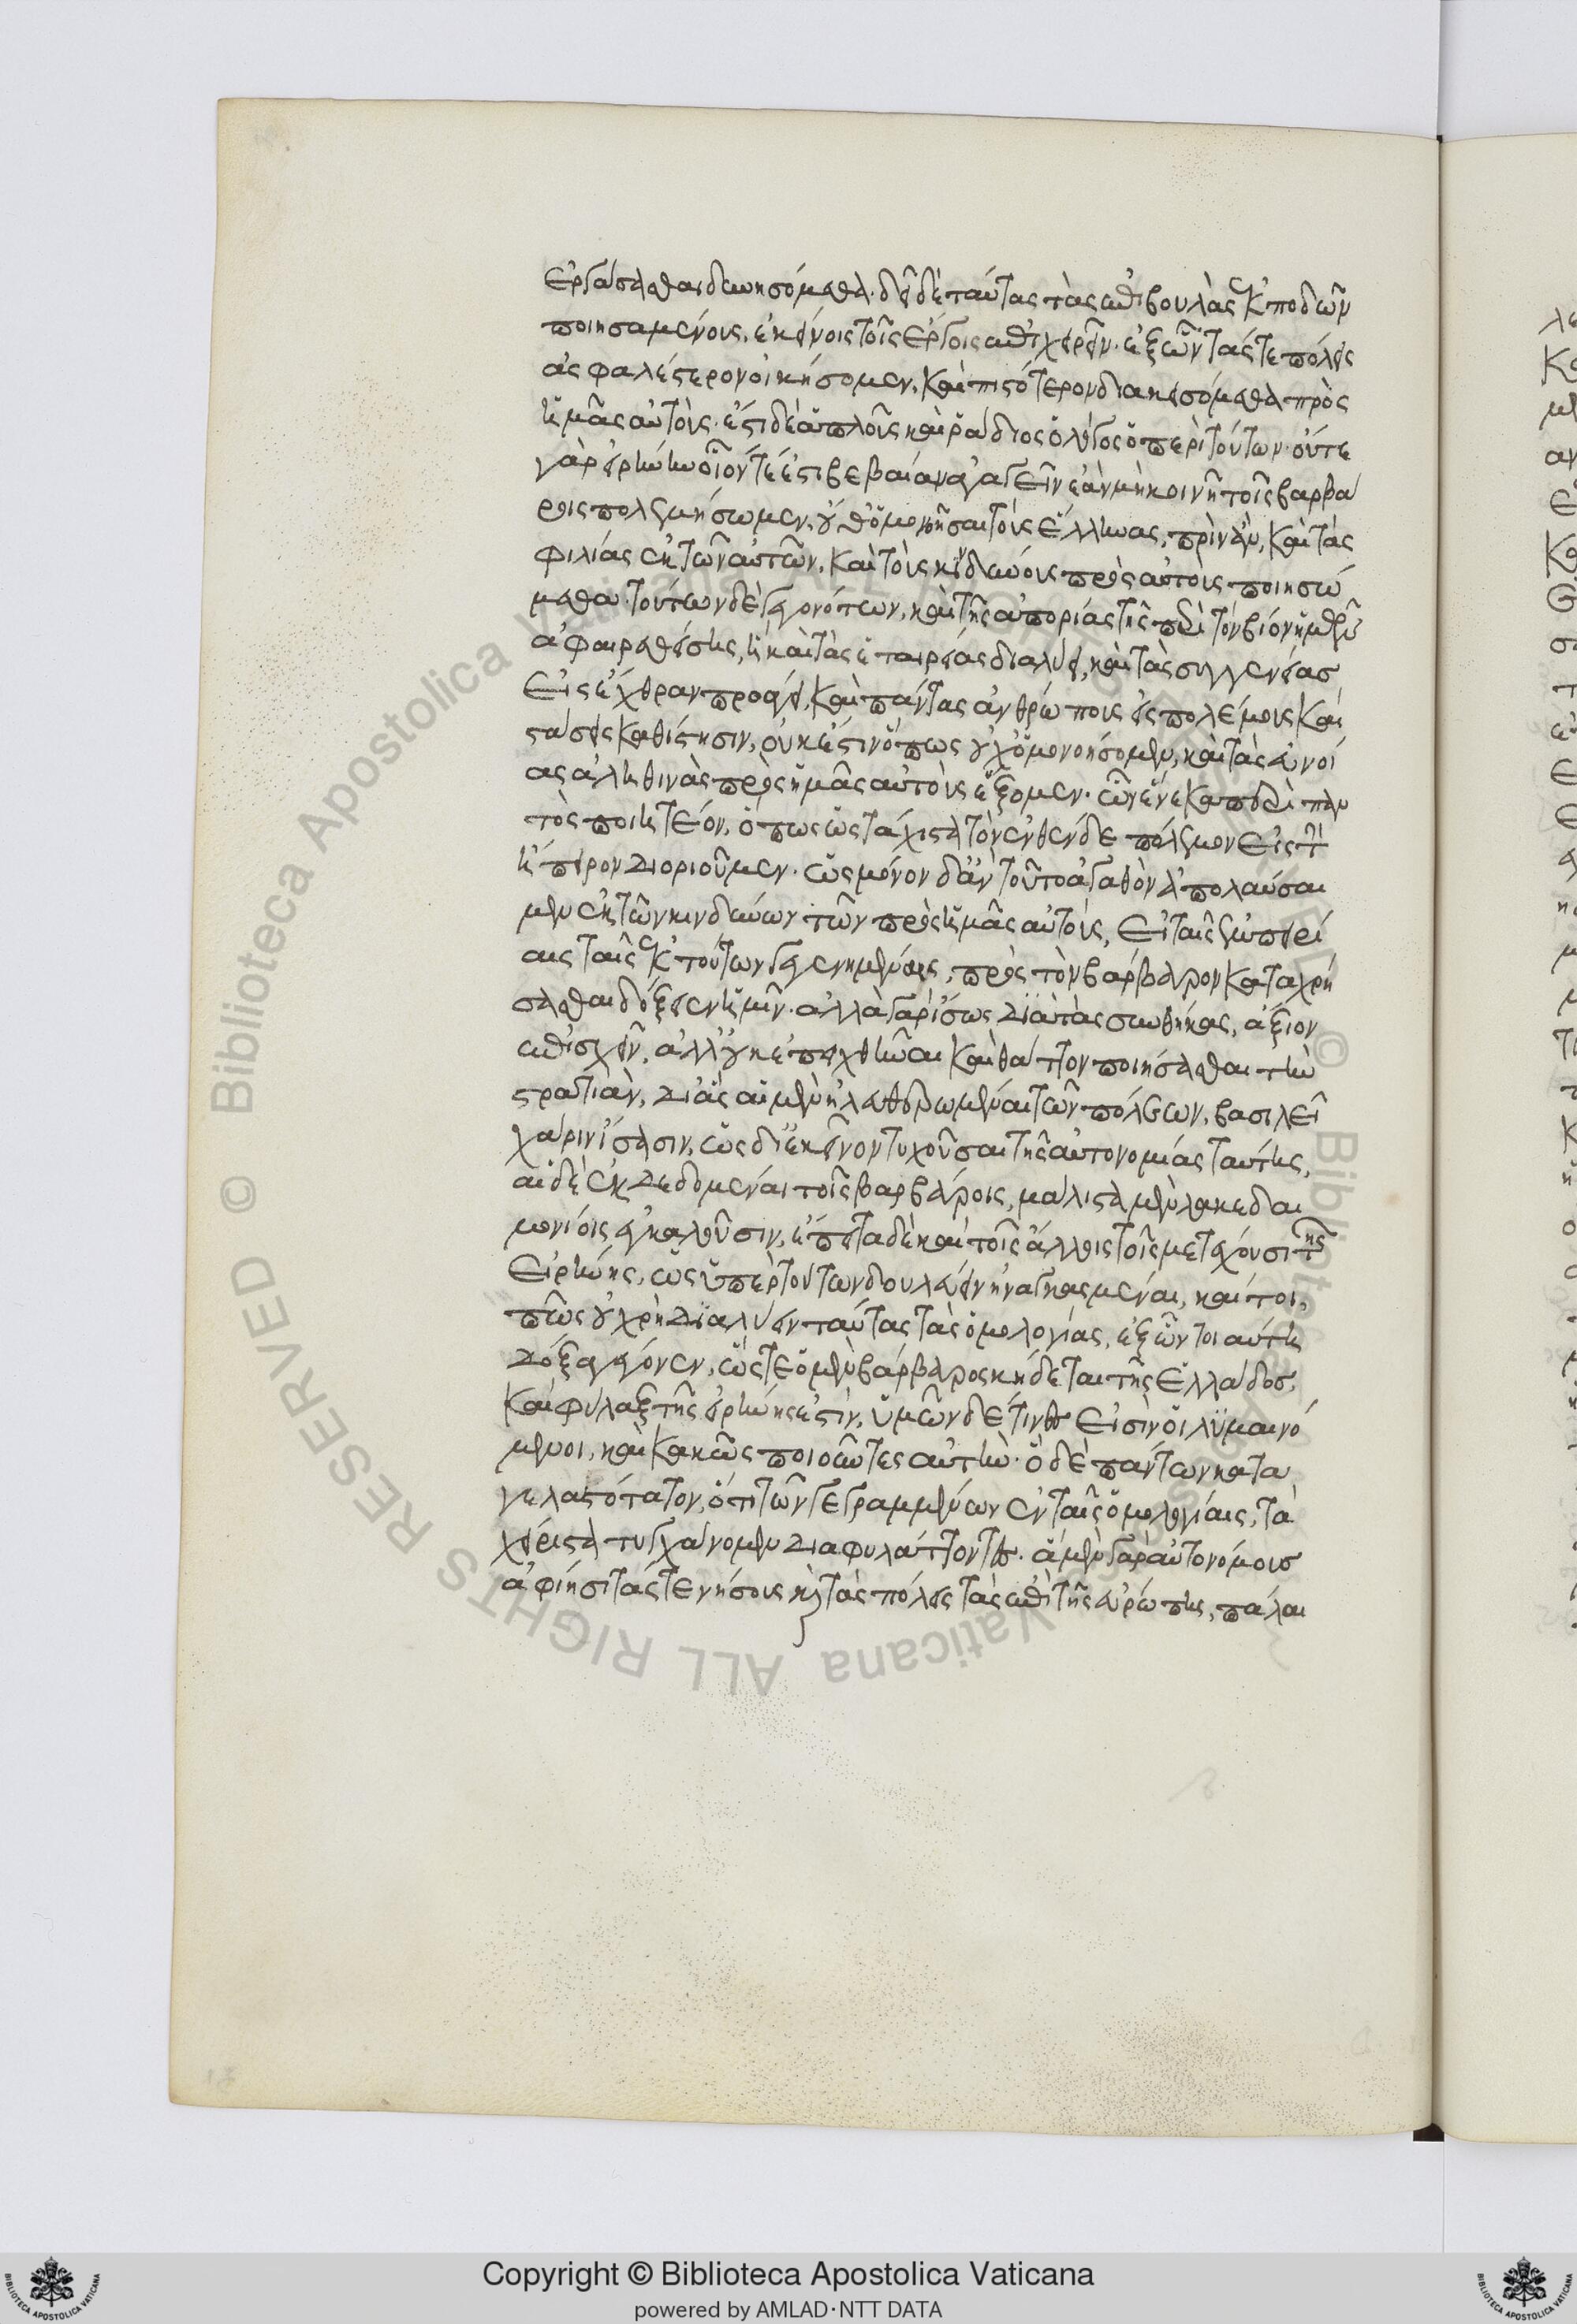 ἐργάσασθαι δεδυνησόμεθα. δεῖ δὲ ταύτας τὰς ἐπιβουλὰς ἐκποδὼν
ποιησαμένους, ἐκείνοις τοῖς ἔργοις ἐπιχειρεῖν. ἐξ ὧν τάς τε πόλεις
ἀσφαλέστερον οἰκήσομεν, καὶ πιστότερον διακεισόμεθα πρὸς
ἡμᾶς αὐτούς. ἔστι δὲ ἁπλοῦς καὶ ῥάδιος ὁ λόγος ὁ περὶ τούτων. οὔτε
γὰρ εἰρήνην οἷόν τέ ἐστι βεβαίαν ἀγαγεῖν ἐὰν μὴ κοινῇ τοῖς βαρβά
ροις πολεμήσωμεν, οὔθ' ὁμονοῆσαι τοὺς ἕλληνας, πρὶν ἂν, καὶ τὰς
φιλίας ἐκ τῶν αὐτῶν, καὶ τοὺς κινδύνους πρὸς αὐτοὺς ποιησώ
μεθα. τούτων δὲ γενομένων, καὶ τῆς ἀπορίας τῆς περὶ τὸν βίον ἡμῶν
ἀφαιρεθείσης, ἣ καὶ τὰς ἑταιρείας διαλύει, καὶ τὰς συγγενείας
εἰς ἔχθραν προάγει, καὶ πάντας ἀνθρώπους εἰς πολέμους καὶ
στάσεις καθίστησιν, οὐκ ἔστιν ὅπως οὐχ ὁμονοήσομεν, καὶ τὰς εὐνοί
ας ἀληθινὰς πρὸς ἡμᾶς αὐτοὺς ἕξομεν. ὧν ἕνεκα περὶ παν
τὸς ποιητέον, ὅπως ὡς τάχιστα τὸν ἐνθένδε πόλεμον εἰς τὴν
ἤπειρον διοριοῦμεν. ὡς μόνον δ' ἂν τοῦτο ἀγαθὸν ἀπολαύσαι
μεν ἐκ τῶν κινδύνων τῶν πρὸς ἡμᾶς αὐτούς, εἰ ταῖς ἐμπειρί
αις ταῖς ἐκ τούτων γεγενημέναις, πρὸς τὸν βάρβαρον καταχρή
σασθαι δόξειεν ἡμῖν. ἀλλὰ γὰρ ἴσως διὰ τὰς συνθήκας, ἄξιον
ἐπισχεῖν, ἀλλ' οὐκ ἐπειχθῆναι καὶ θᾶττον ποιήσασθαι τὴν
στρατιὰν, δι' ἃς αἱ μὲν ἠλευθερωμέναι τῶν πόλεων, βασιλεῖ
χάριν ἴσασιν, ὡς δι' ἐκεῖνον τυχοῦσαι τῆς αὐτονομίας ταύτης,
αἱ δὲ ἐκδεδομέναι τοῖς βαρβάροις, μάλιστα μὲν λακεδαι
μονίοις ἐγκαλοῦσιν, ἔπειτα δὲ καὶ τοῖς ἄλλοις τοῖς μετασχοῦσι τῆς
εἰρήνης, ὡς ὑπὲρ τούτων δουλεύειν ἠναγκασμέναι, καίτοι,
πῶς οὐ χρὴ διαλύειν ταύτας τὰς ὁμολογίας, ἐξ ὧν τοιαύτη
δόξα γέγονεν, ὥστε ὁ μὲν βάρβαρος κήδεται τῆς ἑλλάδος,
καὶ φύλαξ τῆς εἰρήνης ἐστὶν, ὑμῶν δέ τινες εἰσὶν οἱ λυμαινό
μενοι, καὶ κακῶς ποιοῦντες αὐτὴν. ὃ δὲ πάντων κατα
γελαστότατον, ὅτι τῶν γεγραμμένων ἐν ταῖς ὁμολογίαις, τὰ
χείριστα τυγχάνομεν διαφυλάττοντες. ἃ μὲν γὰρ αὐτονόμους
ἀφίησι τάς τε νήσους καὶ τὰς πόλεις τὰς ἐπὶ τῆς εὐρώπης, πάλαι
Copyright © Biblioteca Apostolica Vaticana
powered by AMLAD·NTT DATA
© Biblioteca Apostolica Vaticana ALL RIGHTS RESERVED